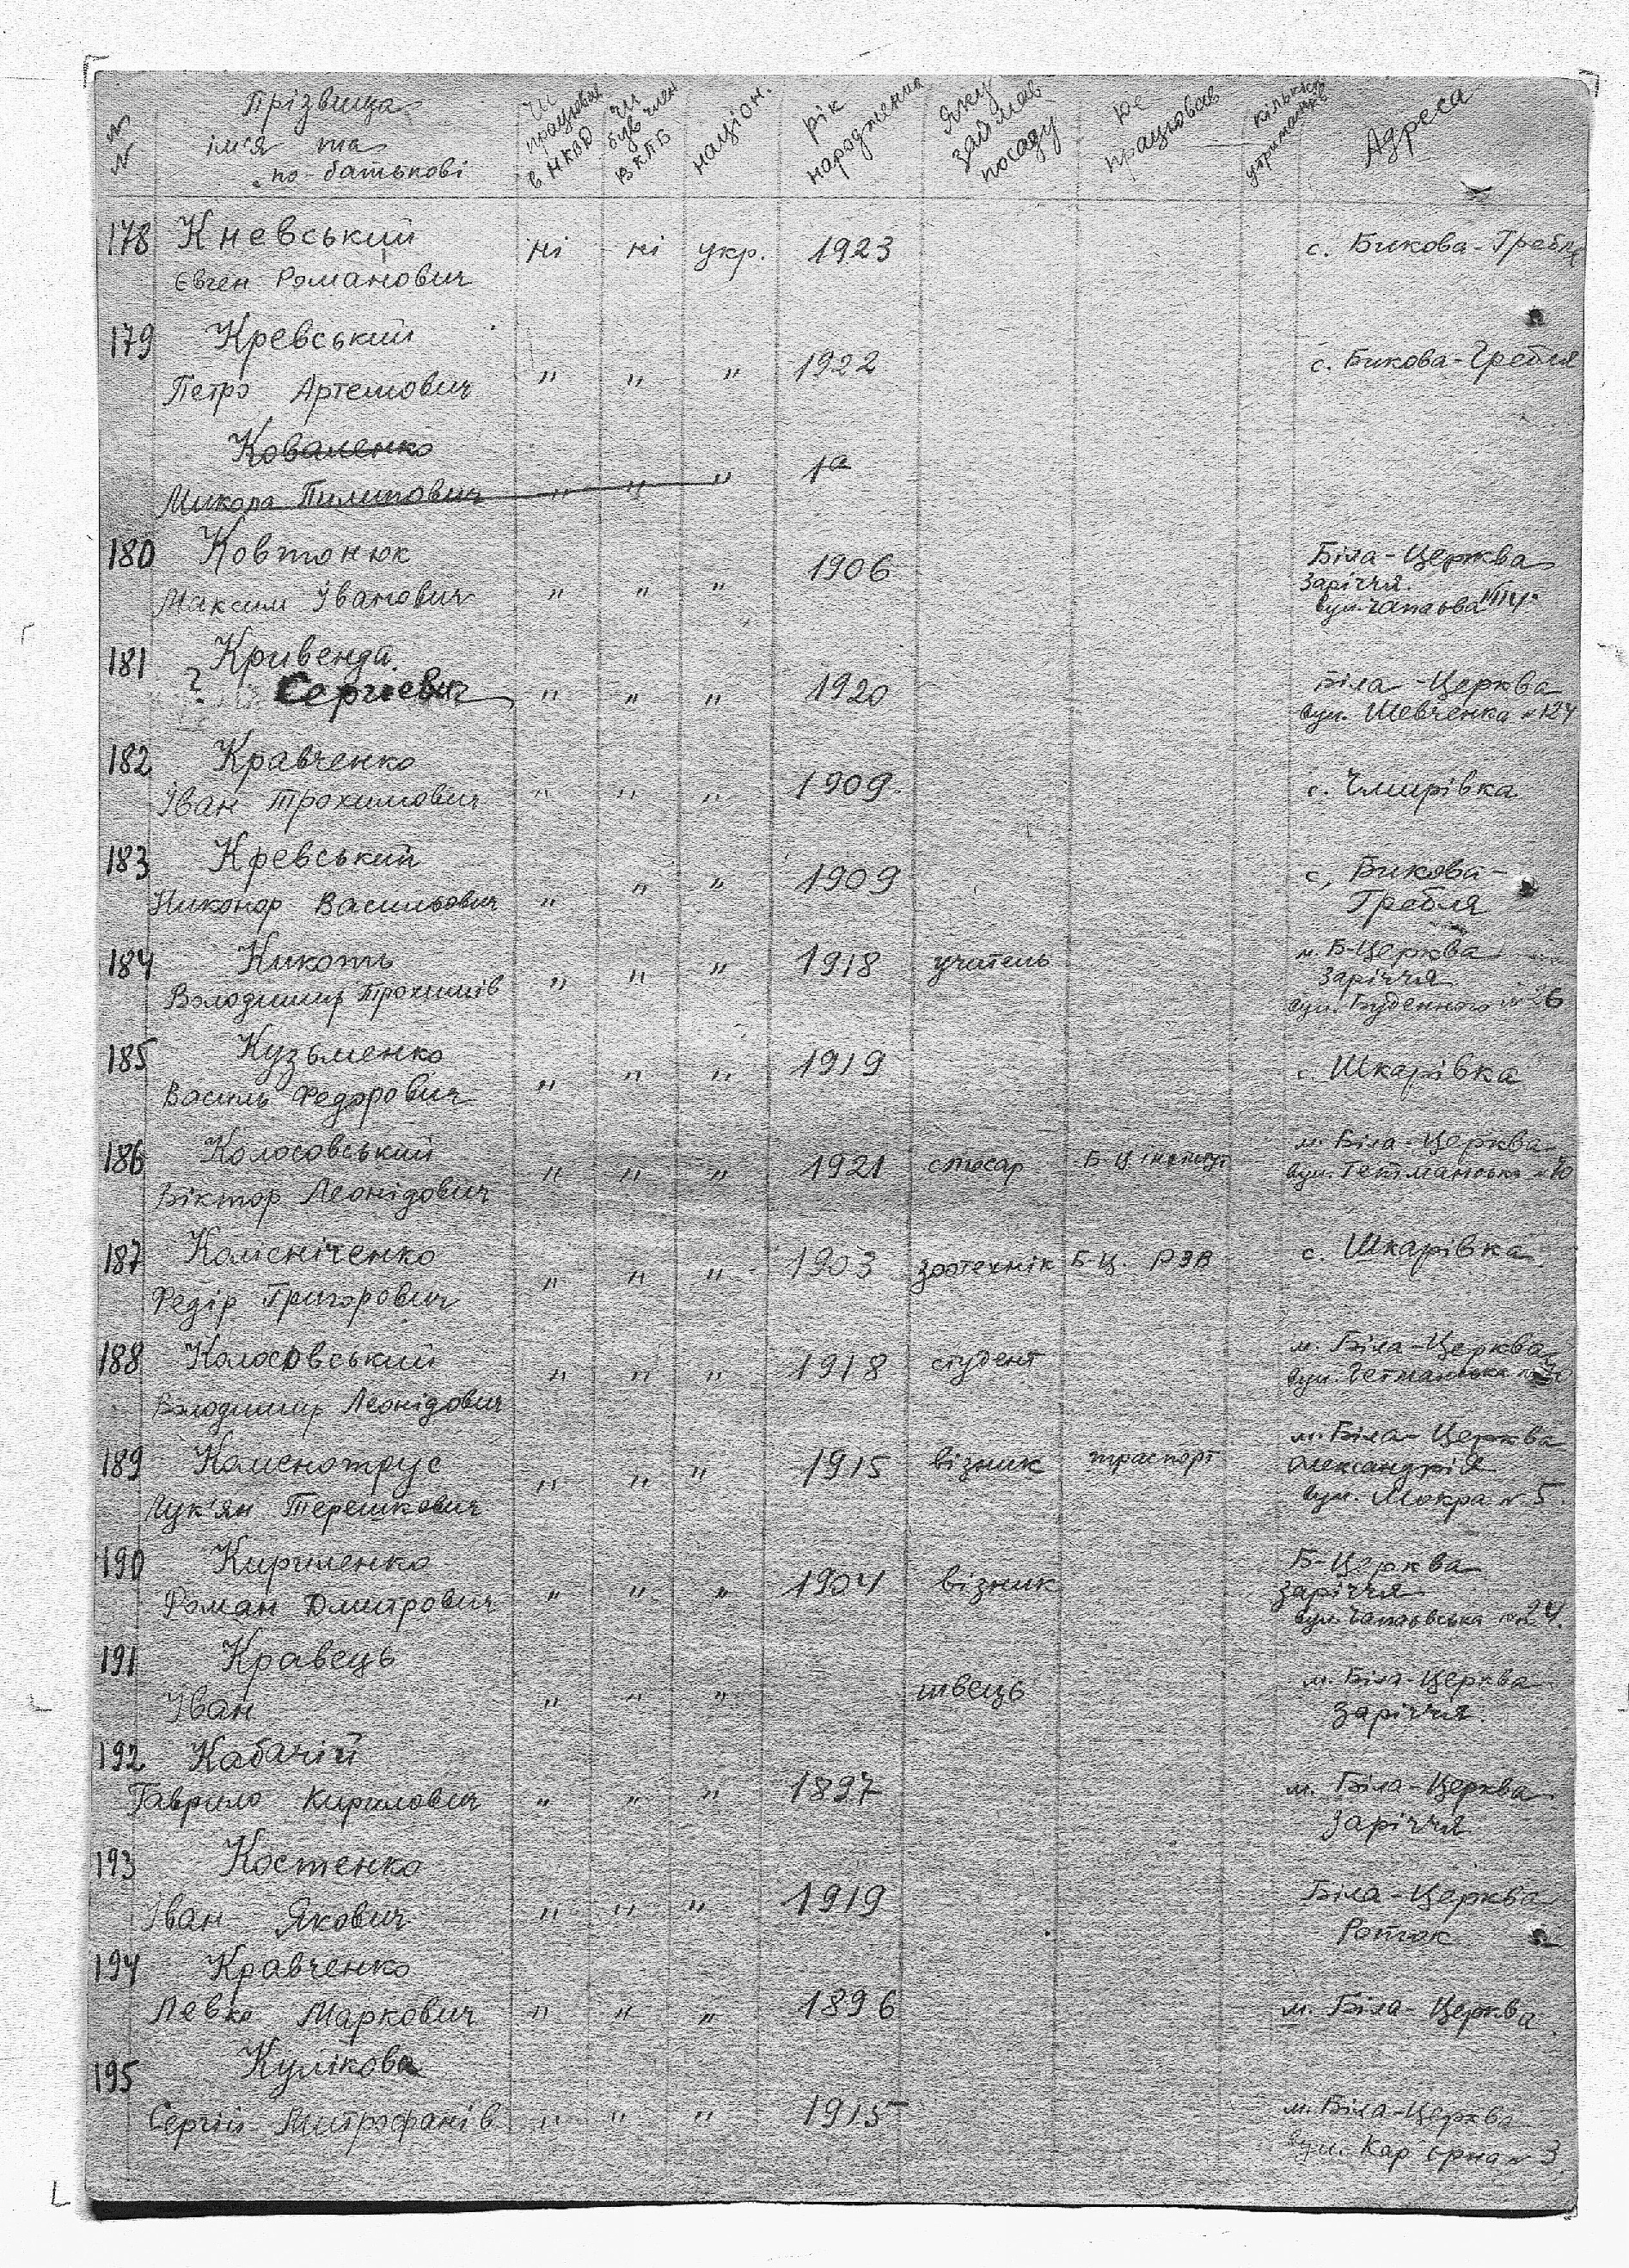 №№ Прізвища ім'я та по-батькові Чи працював в НКВД Чи був член ВКПБ націон. рік народження Яку займав посаду Де працював кількість утриманців Адреса
178 Кневський ні ні укр. 1923 с. Бикова-Гребля
Євген Романович
179 Кревський с. Бикова-Гребля
Петро Артемович " " " 1922
Коваленко
Микола Пилипович " " " 19
180 Ковтонюк 1906 Біла-Церква
Максим Іванович " " " Заріччя.
вул. Чапаєва
181 Кривенда
? Сергієвич " " " 1920 Біла-Церква
вул. Шевченка №124
182 Кравченко
Іван Трохимович " " " 1909. с. Чмирівка
183 Кревський с. Бикова-
Никонор Васильович " " " 1909 Гребля
184 Кикоть " " " 1918 учитель м. Б-Церква
Володимир Трохимів Заріччя
вул. Буденного №26
185 Кузьменко 1919
Василь Федорович " " " с. Шкарівка
186 Колосовський 1921 слюсар Б-Ц. м. Біла-Церква
Віктор Леонідович " " " вул. Гетманська
187 Колісніченко " " " 1903 зоотехнік Б-Ц. РЗВ с. Шкарівка
Федір Григорович
188 Колосовський " " " 1918 студент м. Біла-Церква
Володимир Леонідович вул. Гетманська
189 Каменотрус " " " 1915 візник траспорт м. Біла-Церква
Лук'ян Терешкович Олександрія
вул. Мокра №5.
190 Кириленко Б-Церква
Роман Дмитрович " " " 1904 візник Заріччя
вул. Чапаєвська №24.
191 Кравець
Іван " " " швець м. Біла-Церква
Заріччя.
192 Кабачій
Гаврило Кирилович " " " 1897 м. Біла-Церква
Заріччя
193 Костенко
Іван Якович " " " 1919 Біла-Церква
Роток
194 Кравченко
Левко Маркович " " " 1896 м. Біла-Церква
195 Кулікова
Сергій Митрофанів " " " 1915 м. Біла-Церква
вул. Кар'єрна №3